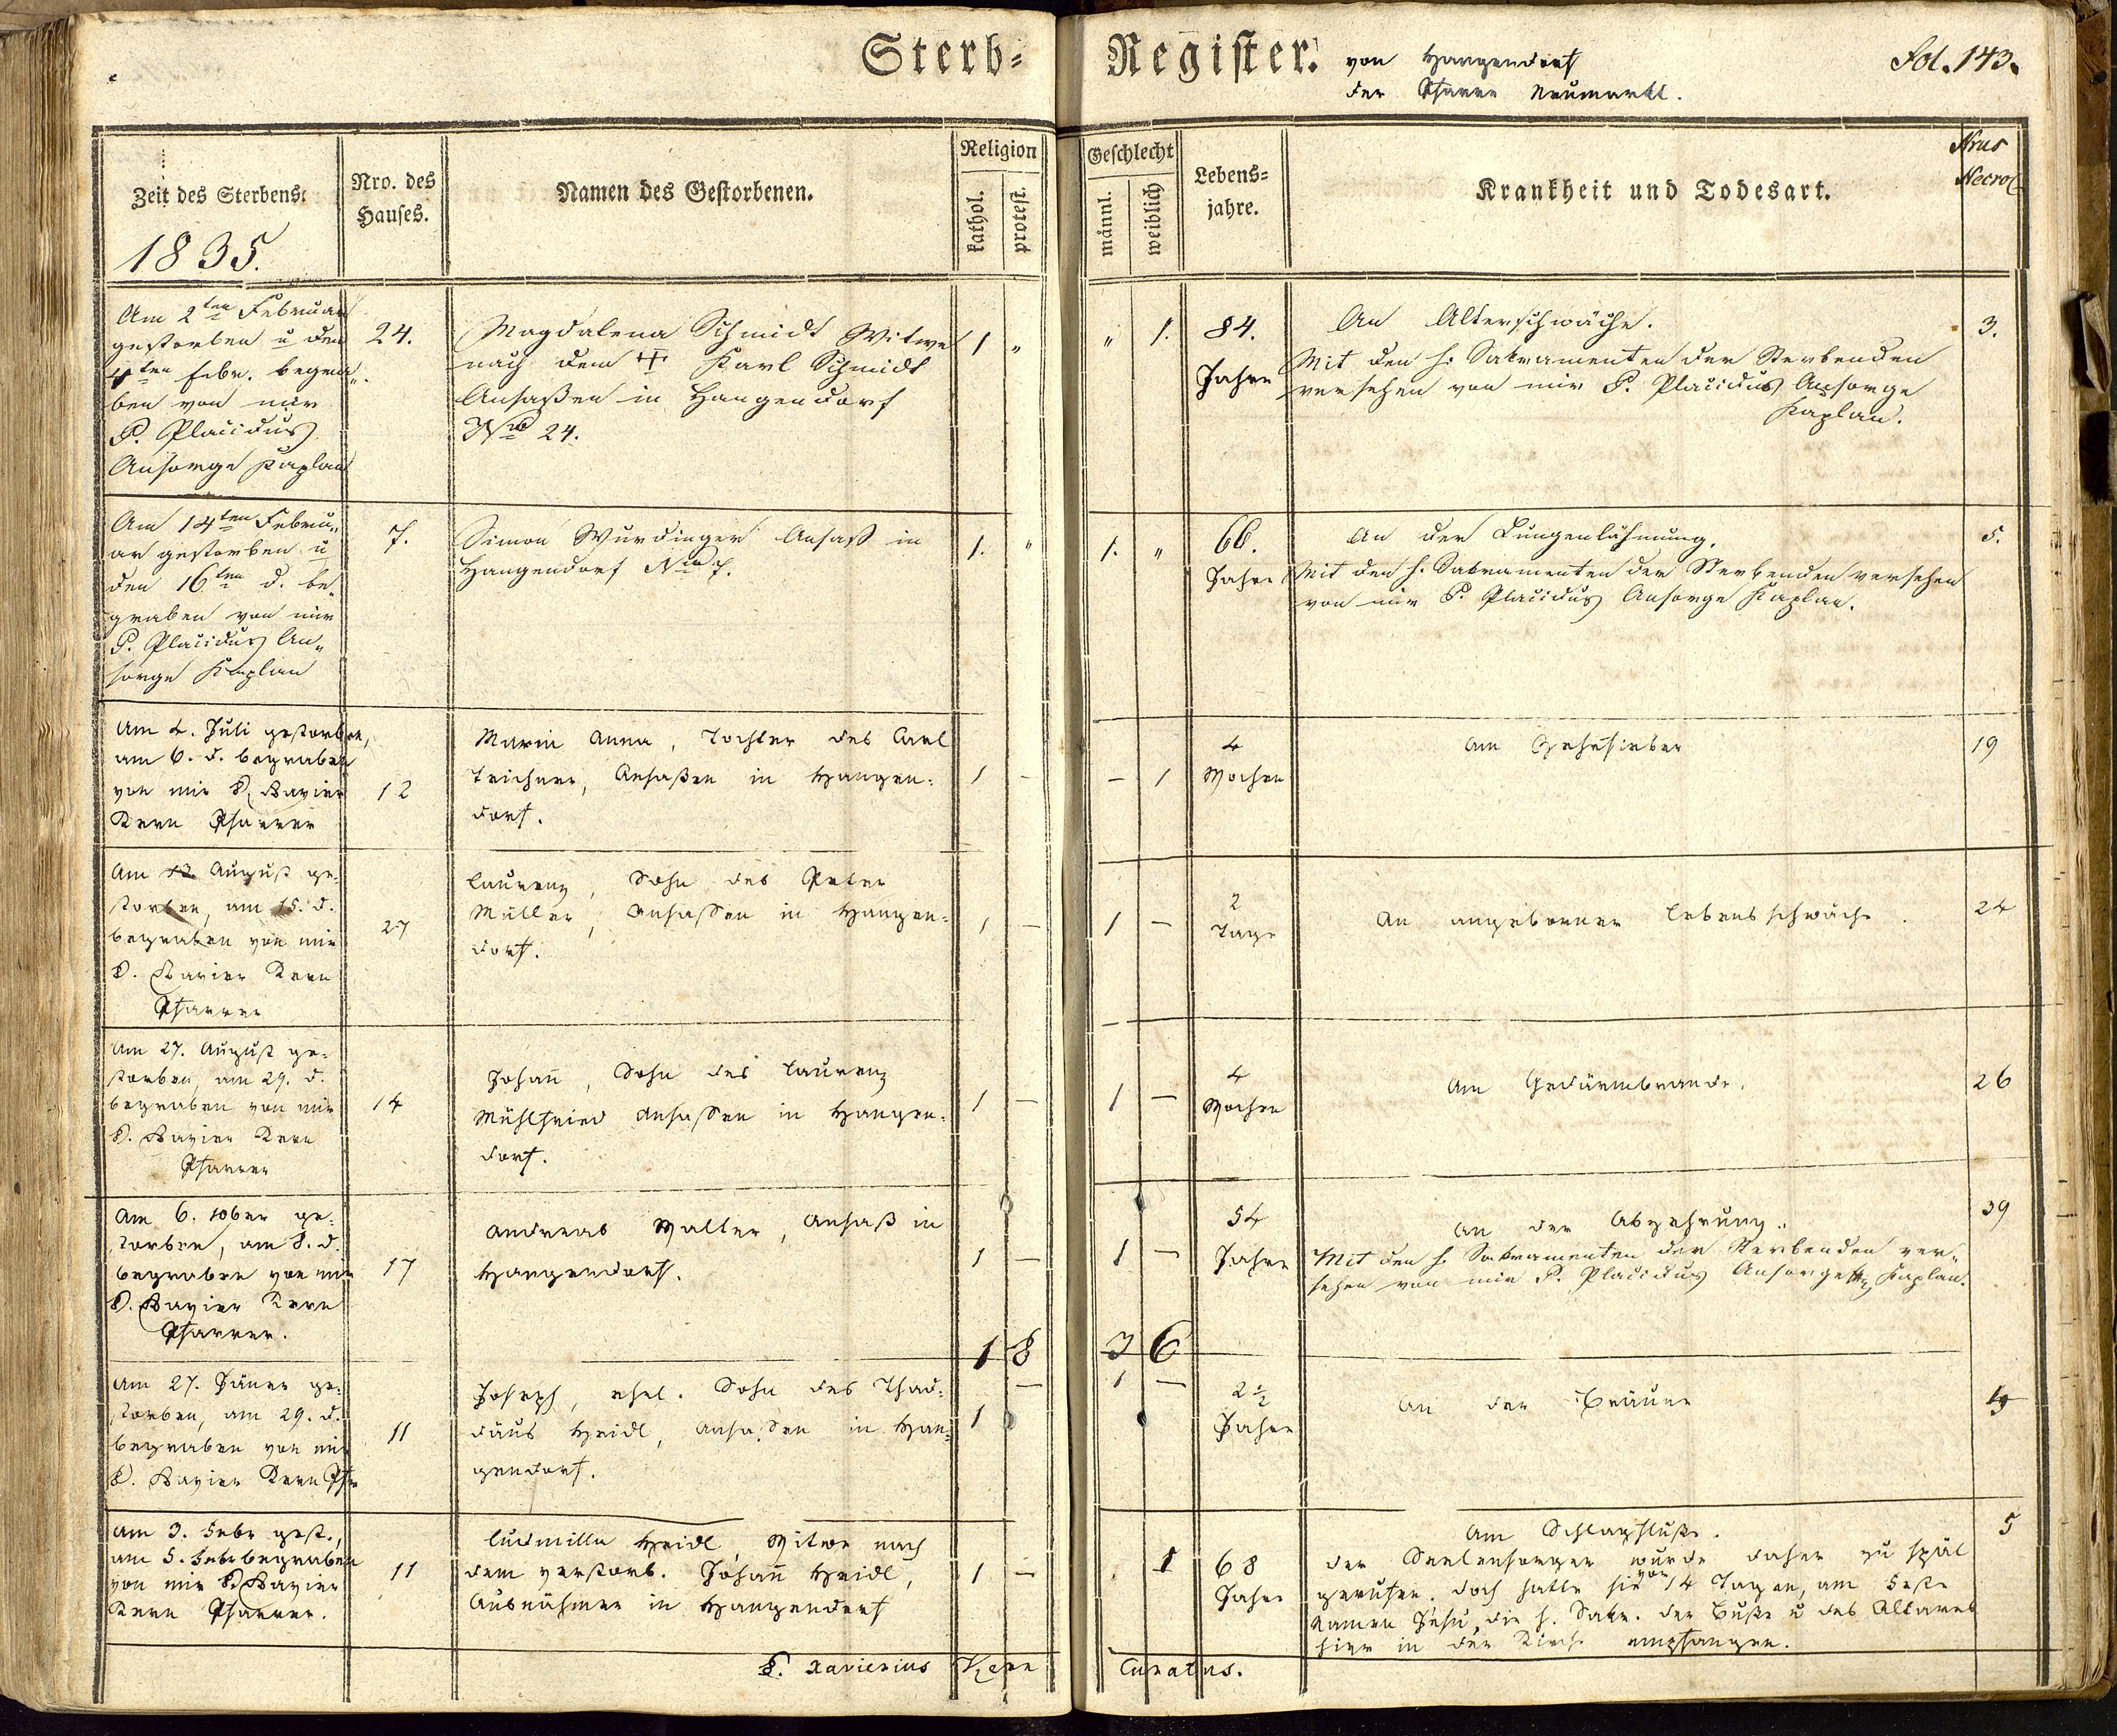 Sterb= Register. von Hangendorf
der Pfarre Neumarkt.
Fol. 143.
Zeit des Sterbens.
1835.
Nro. des
Hauses.
Namen des Gestorbenen.
Religion
kathol.
protest.
Geschlecht
männl.
weiblich
Lebens=
jahre.
Krankheit und Todesart.
Nrus
Necrol
Am 2ten Februar
gestorben u den
4ten Febr. begra„
ben von mir
P. Placidus
Ansorge Kaplan
24.
Magdalena Schmidt Witwe
nach dem ✝ Karl Schmidt
Ansaßen in Hangendorf
Nro 24.
1 „
„ 1.
84.
Jahre
An Altersschwäche.
Mit den h. Sakramenten der Sterbenden
versehen von mir P. Placidus Ansorge
Kaplan.
3.
Am 14ten Febru„
ar gestorben u
den 16ten d. be„
graben von mir
P. Placidus An„
sorge Kaplan
7.
Simon Wurdinger Ansaß in
Hangendorf Nro 7.
1. „
1. „
66.
Jahre
An der Lungenlähmung.
Mit den h. Sakramenten der Sterbenden versehen
von mir P. Placidus Ansorge Kaplan.
5.
Am 4. Juli gestorben,
am 6. d. begraben
von mir P. Xavier
Kern Pfarrer
12
Maria Anna, Tochter des Carl
Teichner, Ansaßen in Hangen=
dorf.
1 -
- 1
4
Wochen
Am Zehrfieber
19
Am 13 August ge=
storben, am 15. d.
begraben von mir
P. Xavier Kern
Pfarrer
27
Laurenz, Sohn des Peter
Müller, Ansassen in Hangen=
dorf.
1 -
1 -
2
Tage
An angeborner Lebensschwäche.
24
Am 27. August ge=
storben, am 29. d.
begraben von mir
P. Xavier Kern
Pfarrer
14
Johann, Sohn des Laurenz
Mühlfried Ansassen in Hangen=
dorf.
1 -
1 -
4
Wochen
Am Gedärmbrande.
26
Am 6. 10ber ge=
storben, am 8. d.
begraben von mir
P. Xavier Kern
Pfarrer.
17
Andreas Walter, Ansaß in
Hangendorf.
1 -
1 -
54
Jahre
An der Abzehrung.
Mit den h. Sakramenten der Sterbenden ver„
sehen von mir P. Placidus Ansorge Kaplan.
39
1 8 3 6
Am 27. Jäner ge=
storben, am 29. d.
begraben von mir
P. Xavier Kern Pfr
11
Joseph, ehel. Sohn des Thad=
däus Heidl, Ansassen in Han=
gendorf.
1 -
1 -
2 1/2
Jahre
An der Bräune
4
Am 3. Febr gest.,
am 5. Febr begraben
von mir P. Xavier
Kern Pfarrer.
11
Ludmilla Heidl, Witwe nach
dem verstorb. Johann Heidl,
Ausnähmer in Hangendorf
1 -
1
68
Jahre
Am Schlagfluße.
Der Seelensorger wurde daher zu spät
gerufen. Doch hatte sie vor 14 Tagen, am Feste
Namen Jesu, die h. Sakr. der Buße u des Altares
hier in der Kirche empfangen.
5
P. Xaverius Kern Curatus.